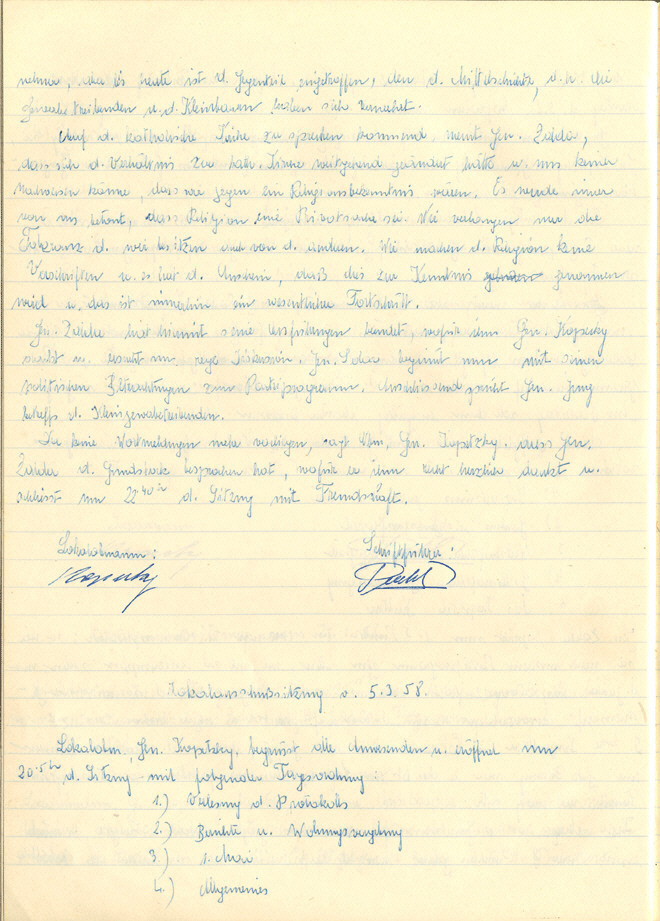 nehmen, aber bis heute ist d. Gegenteil eingetroffen, denn d. Mittelschichte, d.h. die
Gewerbetreibenden u. d. Kleinbauern haben sich vermehrt.
Auf d. katholische Kirche zu sprechen kommend, meint Gen. Zalda,
dass sich d. Verhältnis zur kath. Kirche weitgehend geändert hätte u. uns keiner
nachweisen könne, dass wir gegen ein Religionsbekenntnis wären. Es werde immer
von uns betont, dass Religion eine Privatsache sei. Wir verlangen nur die
Toleranz d. wir besitzen auch von d. anderen. Wir machen d. Religion keine
Vorschriften u. es hat d. Anschein, daß dies zur Kenntnis genommen
wird u. das ist immerhin ein wesentlicher Fortschritt.
Gen. Zalda hat hiermit seine Ausführungen beendet, wofür ihm Gen. Kopecky
dankt u. ersucht um rege Diskussion. Gen. beginnt nun mit seinen
politischen Betrachtungen zum Parteiprogramm. Anschliessend spricht Gen. Jung
betreffs d. Kleingewerbetreibenden.
Da keine Wortmeldungen mehr vorliegen, sagt Obm. Gen. Kopetzky, dass Gen.
Zalda d. gesprochen hat, wofür er ihm recht herzlich dankt u.
schliesst um 22 40 h d. Sitzung mit Freundschaft.
Lokalobmann: Schriftführer:
Kopecky
Lokalausschußsitzung v. 5.3.58.
Lokalobm. Gen. Kopetzky, begrüsst alle Anwesenden u. eröffnet um
20.15 h d. Sitzung mit folgender Tagesordnung:
1.) Verlesung d. Protokolls
2.) Berichte u. Wohnungsvergebung
3.) 1. Mai
4.) Allgemeines